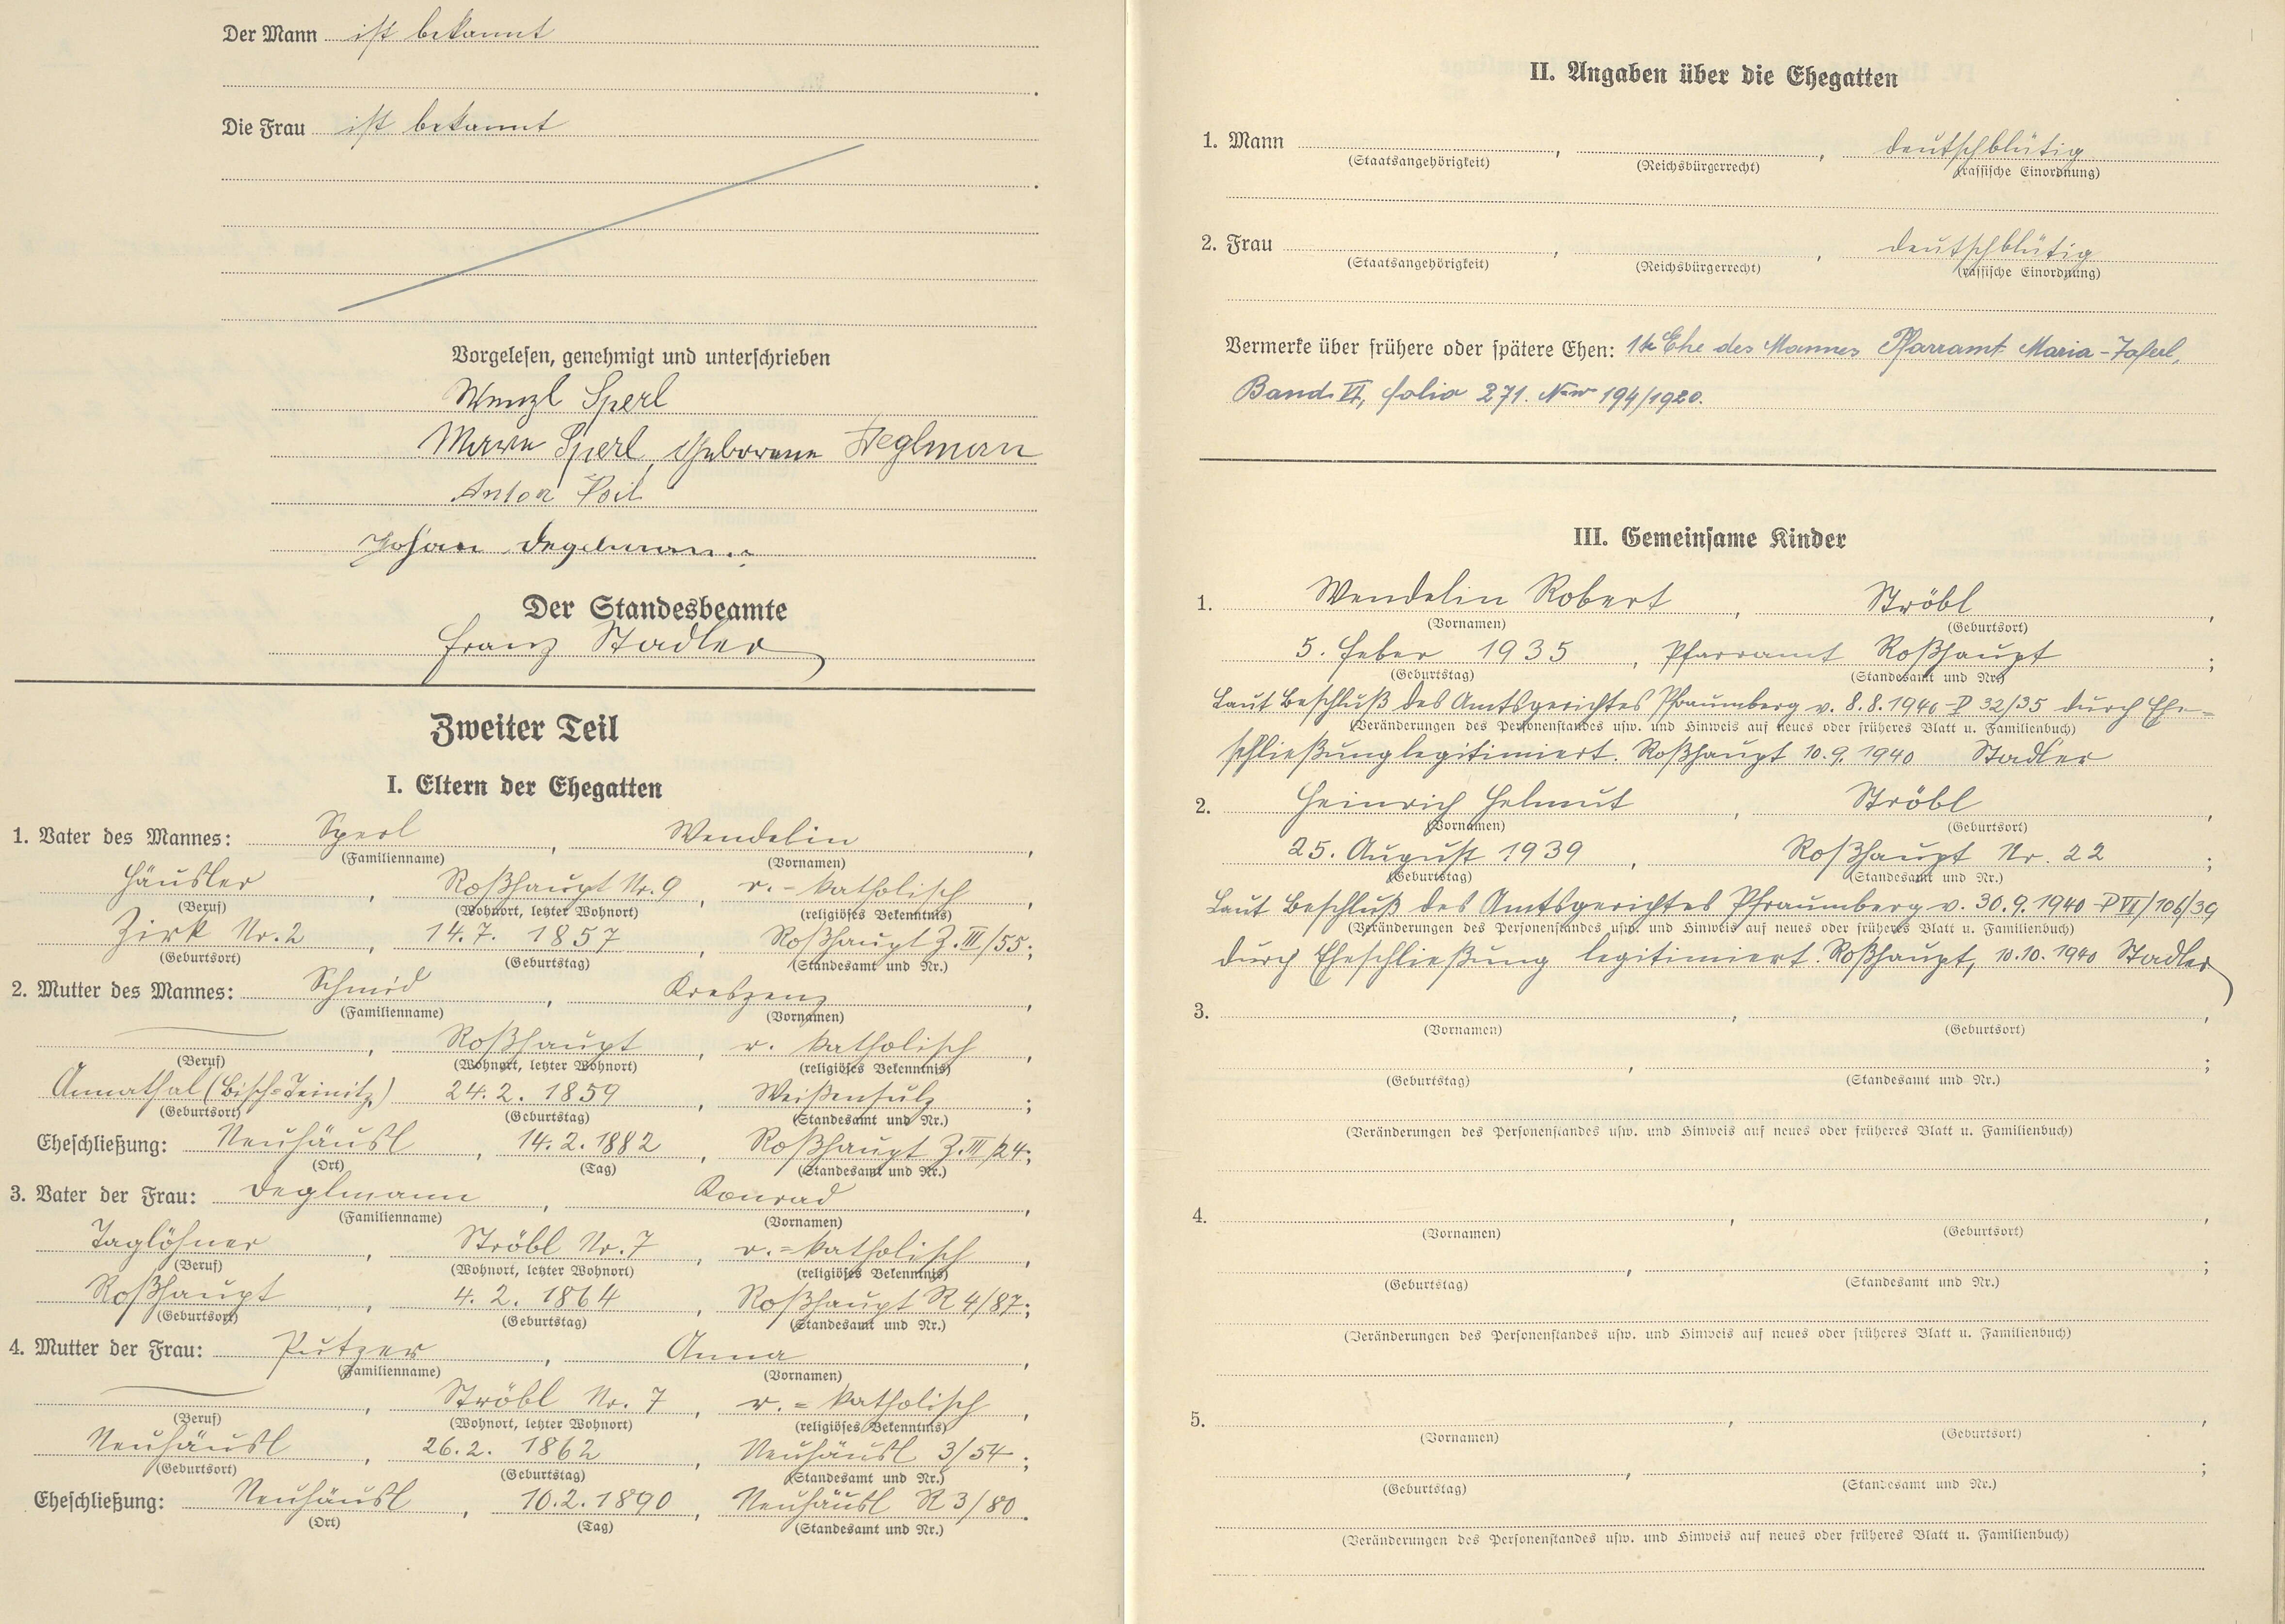 Der Mann ist bekannt
Die Frau ist bekannt
Vorgelesen, genehmigt und unterschrieben
Wenzl Sperl
Sperl, geborene Deglman
Anton
Johan Degelman
Der Standesbeamte
Franz Stadler
Zweiter Teil
I. Eltern der Ehegatten
1. Vater des Mannes: Sperl, Wendelin,
(Familienname) (Vornamen)
Häusler, Roßhaupt Nr. 9, r.-katholisch,
(Beruf) (Wohnort, letzter Wohnort) (religiöses Bekenntnis)
Zirk Nr. 2, 14.7. 1857, Roßhaupt Z. III/55;
(Geburtsort) (Geburtstag) (Standesamt und Nr.)
2. Mutter des Mannes: Schmid, Kreszenz,
(Familienname) (Vornamen)
, Roßhaupt, r. katholisch,
(Beruf) (Wohnort, letzter Wohnort) (religiöses Bekenntnis)
Annathal (Bisch=Teinitz), 24.2. 1859, Weißensulz;
(Geburtsort) (Geburtstag) (Standesamt und Nr.)
Eheschließung: Neuhäusl, 14.2.1882, Roßhaupt Z. III/24;
(Ort) (Tag) (Standesamt und Nr.)
3. Vater der Frau: Deglmann, Konrad,
(Familienname) (Vornamen)
Taglöhner, Ströbl Nr. 7, r.=katholisch,
(Beruf) (Wohnort, letzter Wohnort) (religiöses Bekenntnis)
Roßhaupt, 4.2. 1864, Roßhaupt R 4/87;
(Geburtsort) (Geburtstag) (Standesamt und Nr.)
4. Mutter der Frau: Putzer, Anna,
(Familienname) (Vornamen)
, Ströbl Nr. 7, r.=katholisch,
(Beruf) (Wohnort, letzter Wohnort) (religiöses Bekenntnis)
Neuhäusl, 26.2. 1862, Neuhäusl 3/54;
(Geburtsort) (Geburtstag) (Standesamt und Nr.)
Eheschließung: Neuhäusl, 10.2.1890, Neuhäusl R 3/80.
(Ort) (Tag) (Standesamt und Nr.)
II. Angaben über die Ehegatten
1. Mann , , deutschblütig
(Staatsangehörigkeit) (Reichsbürgerrecht) (rassische Einordnung)
2. Frau , , deutschblütig
(Staatsangehörigkeit) (Reichsbürgerrecht) (rassische Einordnung)
Vermerke über frühere oder spätere Ehen: 1te Ehe des Mannes Pfarramt Maria-Taferl,
Band VI, folio 271. 194/1920.
III. Gemeinsame Kinder
1. Wendelin Robert, Ströbl,
(Vornamen) (Geburtsort)
5. Feber 1935, Pfarramt Roßhaupt;
(Geburtstag) (Standesamt und Nr.)
Laut Beschluß des Amtsgerichtes Pfraumberg v. 8.8.1940 - P 32/35 durch Ehe=
(Veränderungen des Personenstandes usw. und Hinweis auf neues oder früheres Blatt u. Familienbuch)
schließung legitimiert. Roßhaupt 10.9.1940 Stadler
2. Heinrich Helmut, Ströbl,
(Vornamen) (Geburtsort)
25. August 1939, Roßhaupt Nr. 22;
(Geburtstag) (Standesamt und Nr.)
Laut Beschluß des Amtsgerichtes Pfraumberg v. 30.9.1940 - P VII/106/39
(Veränderungen des Personenstandes usw. und Hinweis auf neues oder früheres Blatt u. Familienbuch)
durch Eheschließung legitimiert. Roßhaupt, 10.10.1940 Stadler
3. , ,
(Vornamen) (Geburtsort)
, ;
(Geburtstag) (Standesamt und Nr.)
(Veränderungen des Personenstandes usw. und Hinweis auf neues oder früheres Blatt u. Familienbuch)
4. , ,
(Vornamen) (Geburtsort)
, ;
(Geburtstag) (Standesamt und Nr.)
(Veränderungen des Personenstandes usw. und Hinweis auf neues oder früheres Blatt u. Familienbuch)
5. , ,
(Vornamen) (Geburtsort)
, ;
(Geburtstag) (Standesamt und Nr.)
(Veränderungen des Personenstandes usw. und Hinweis auf neues oder früheres Blatt u. Familienbuch)